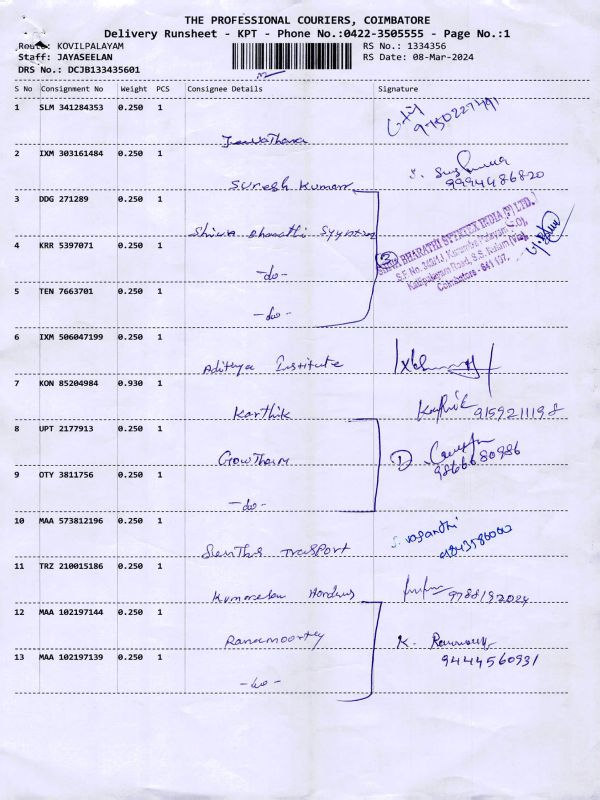 THE PROFESSIONAL COURIERS, COIMBATORE
Delivery Runsheet - KPT - Phone No.:0422-3505555 - Page No.:1
Route: KOVILPALAYAM RS No.: 1334356
Staff: JAYASEELAN RS Date: 08-Mar-2024
DRS No.: DCJB133435601
S No Consignment No Weight PCS Consignee Details Signature
1 SLM 341284353 0.250 1
2 IXM 303161484 0.250 1
Suresh Kumar 9994486820
3 DDG 271289 0.250 1
Shiva Bharathi
SHIVA BHARATHI SYNTEX INDIA (P) LTD.,
4 KRR 5397071 0.250 1
-do-
Kallipalayam Road, S.S. Kulam (Via),
Coimbatore - 641 107.
5 TEN 7663701 0.250 1
-do-
6 IXM 506047199 0.250 1
Adithya Institute
7 KON 85204984 0.930 1
Karthik Karthik 9159211198
8 UPT 2177913 0.250 1
Gowtham 9866680986
9 OTY 3811756 0.250 1
-do-
10 MAA 573812196 0.250 1
Trasport S. vasanthi
11 TRZ 210015186 0.250 1
9788192024
12 MAA 102197144 0.250 1
Ramamoorthy K.
13 MAA 102197139 0.250 1 9444560931
-do-